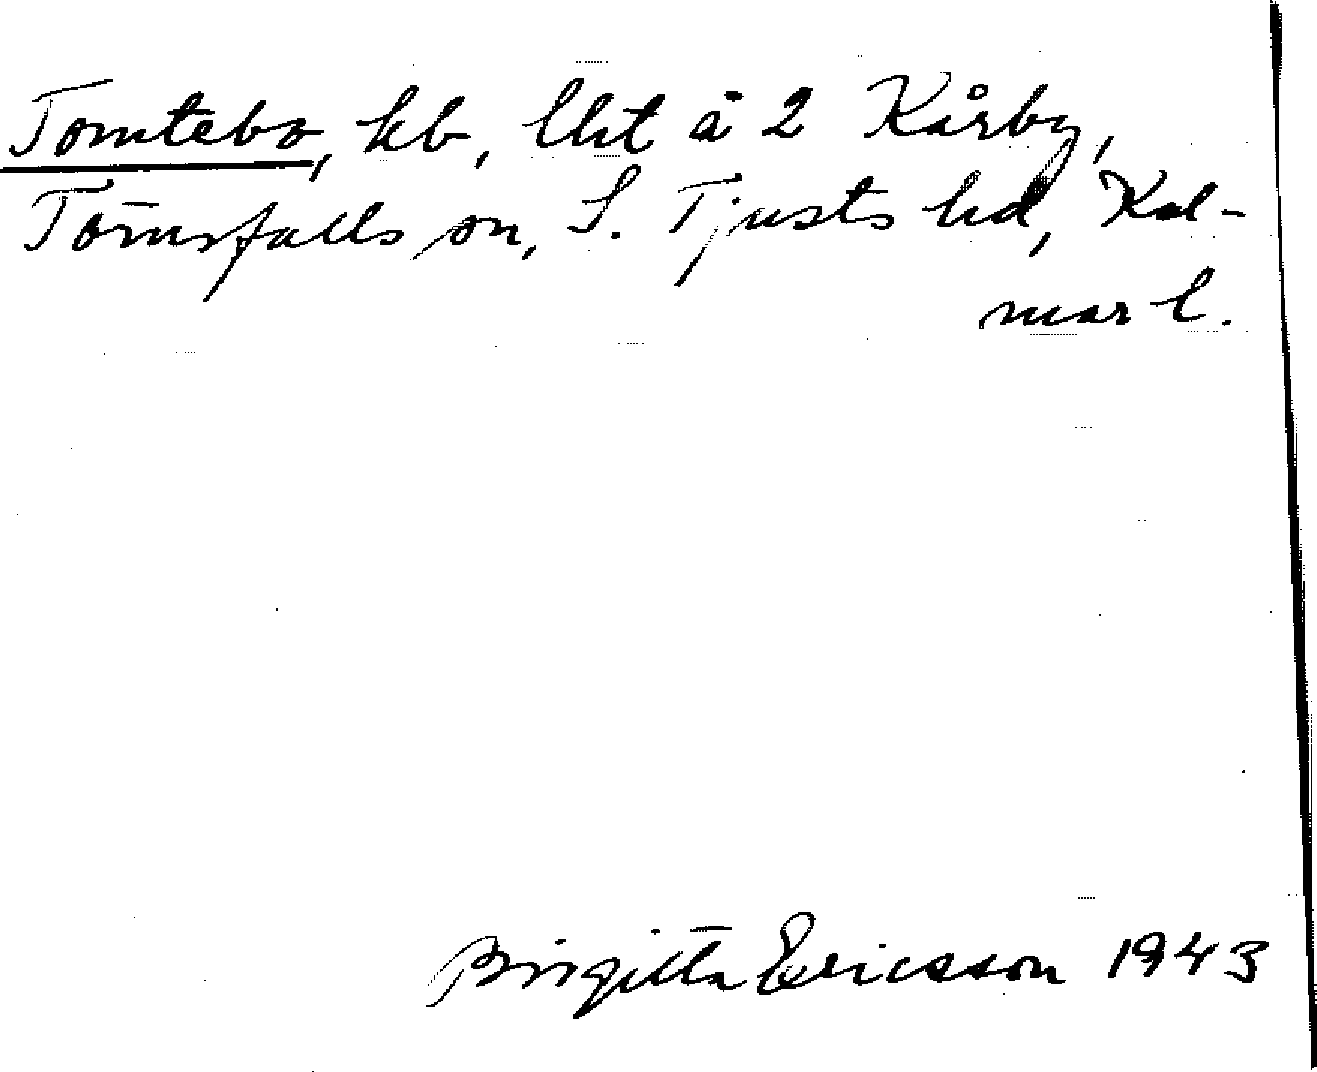 Tomtebo, kb, lht å 2 Kårby,
Törnsfalls sn, S. Tjusts hd, Kal-
mar l.
Birgitta Ericsson 1943